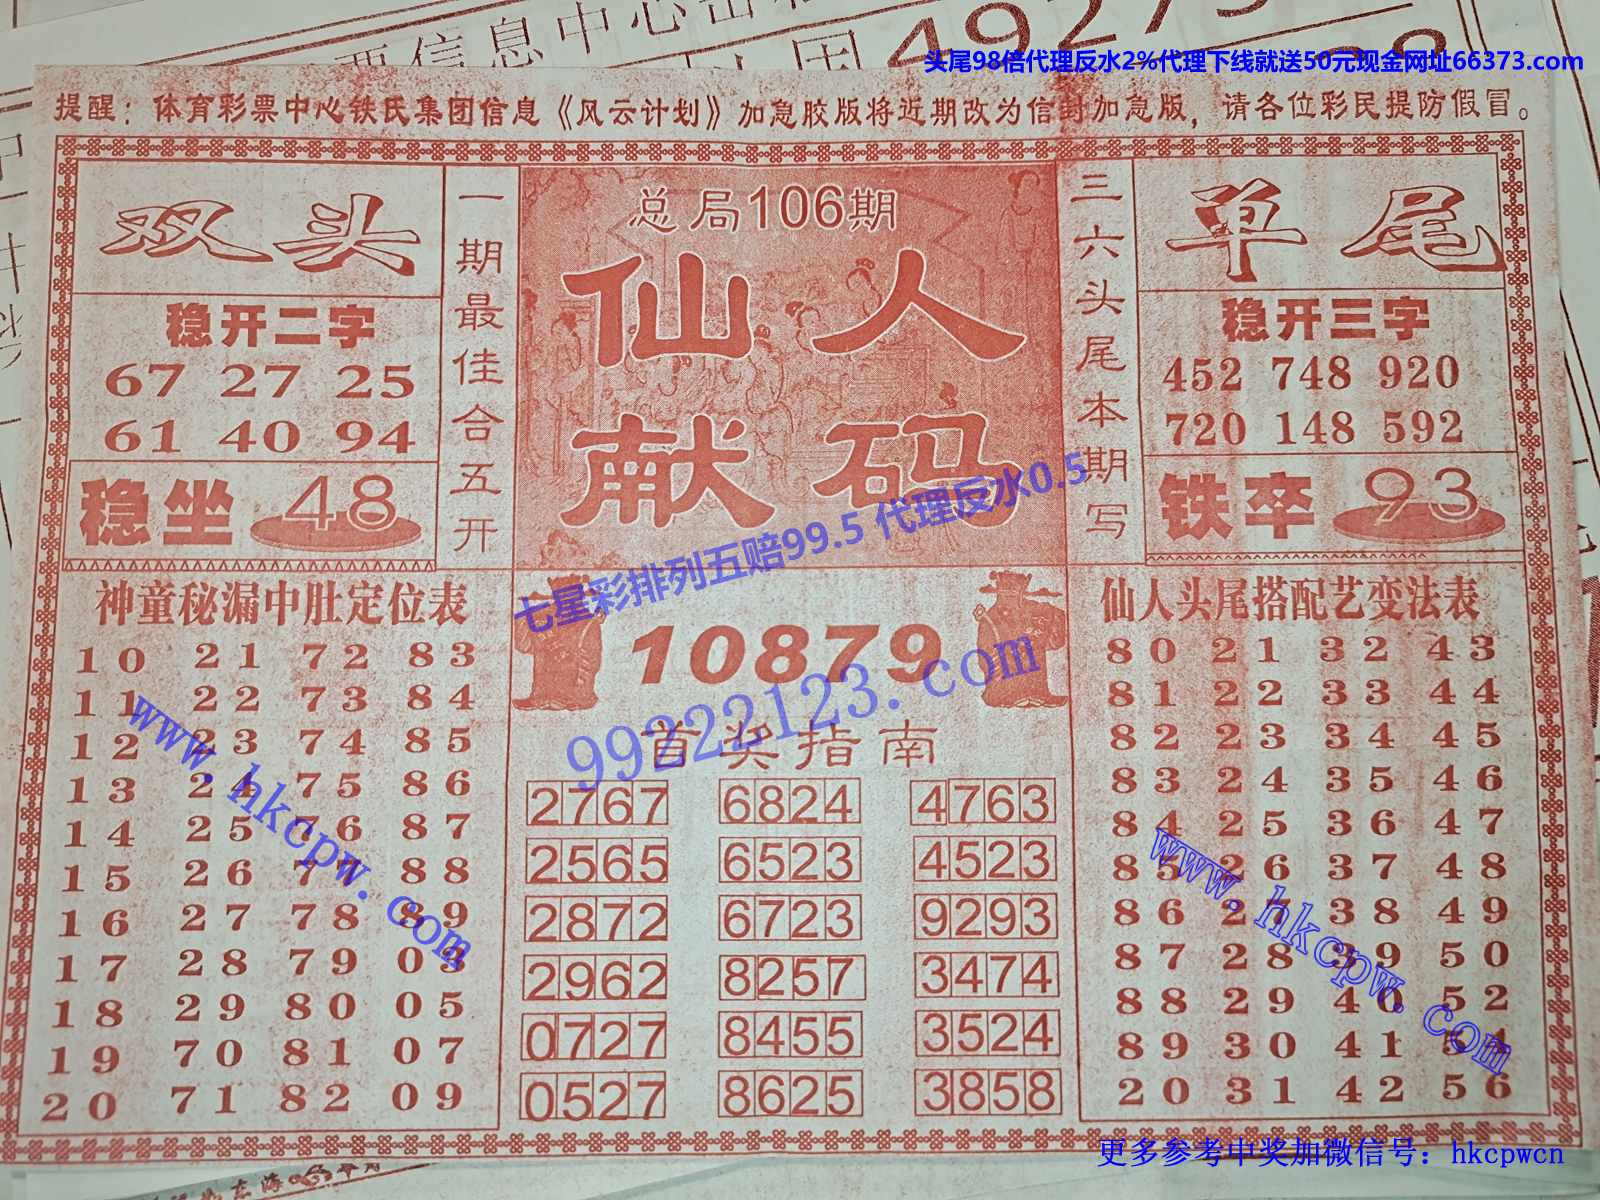 要信息中心
49275
头尾98倍代理反水2%代理下线就送50元现金网址66373.com
提醒：体育彩票中心铁氏集团信息《风云计划》加急胶版将近期改为信封加急版，请各位彩民提防假冒。
双头
稳开二字
67 27 25
61 40 94
稳坐 48
一期最佳合五开
总局106期
仙人
献码
三六头尾本期写
单尾
稳开三字
452 748 920
720 148 592
铁卒 93
七星彩排列五赔99.5 代理反水0.5
神童秘漏中肚定位表
10 21 72 83
11 22 73 84
12 23 74 85
13 24 75 86
14 25 76 87
15 26 77 88
16 27 78 89
17 28 79 03
18 29 80 05
19 70 81 07
20 71 82 09
www.hkcpw.com
10879
99222123.com
首奖指南
2767 6824 4763
2565 6523 4523
2872 6723 9293
2962 8257 3474
0727 8455 3524
0527 8625 3858
仙人头尾搭配艺变法表
80 21 32 43
81 22 33 44
82 23 34 45
83 24 35 46
84 25 36 47
85 26 37 48
86 27 38 49
87 28 39 50
88 29 40 52
89 30 41 54
20 31 42 56
www.hkcpw.com
更多参考中奖加微信号：hkcpwcn